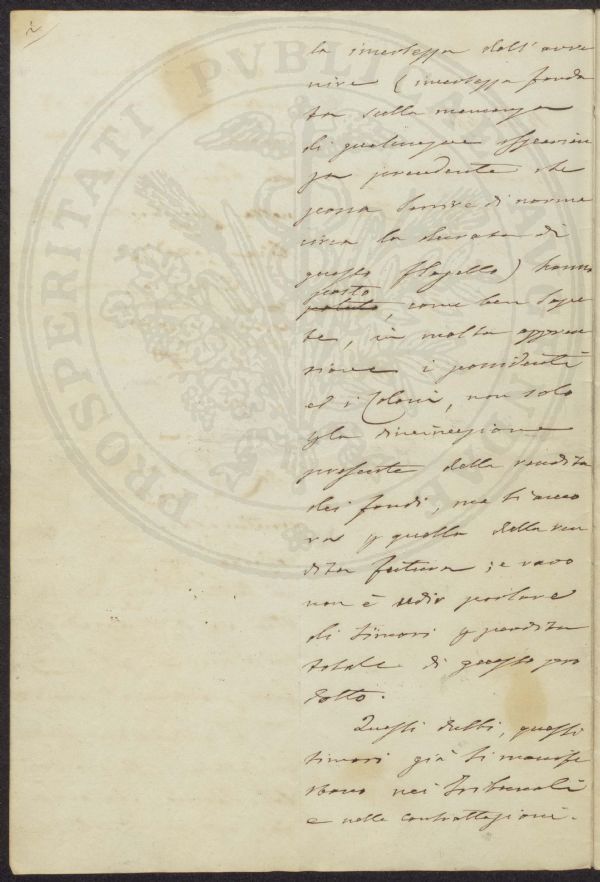 2
la incertezza dell'avve
nire (incertezza fonda
ta sulla mancanza
di qualunque esperien
za precedente che
possa servire di norma
circa la durata di
questo flagello) hanno
posto
, come ben sape
te, in molta appren
sione i possidenti
ed i Coloni, non solo
p la diminuzione
presente della rendita
dei fondi, ma si anco
ra p quella della ren
dita futura; e raro
non è udir parlare
di timori p perdita
totale di questo pro
dotto.
Questi dubbi, questi
timori già si manife
stano nei Tribunali
e nelle contrattazioni.
PROSPERITATI PVBLICAE AVGENDAE